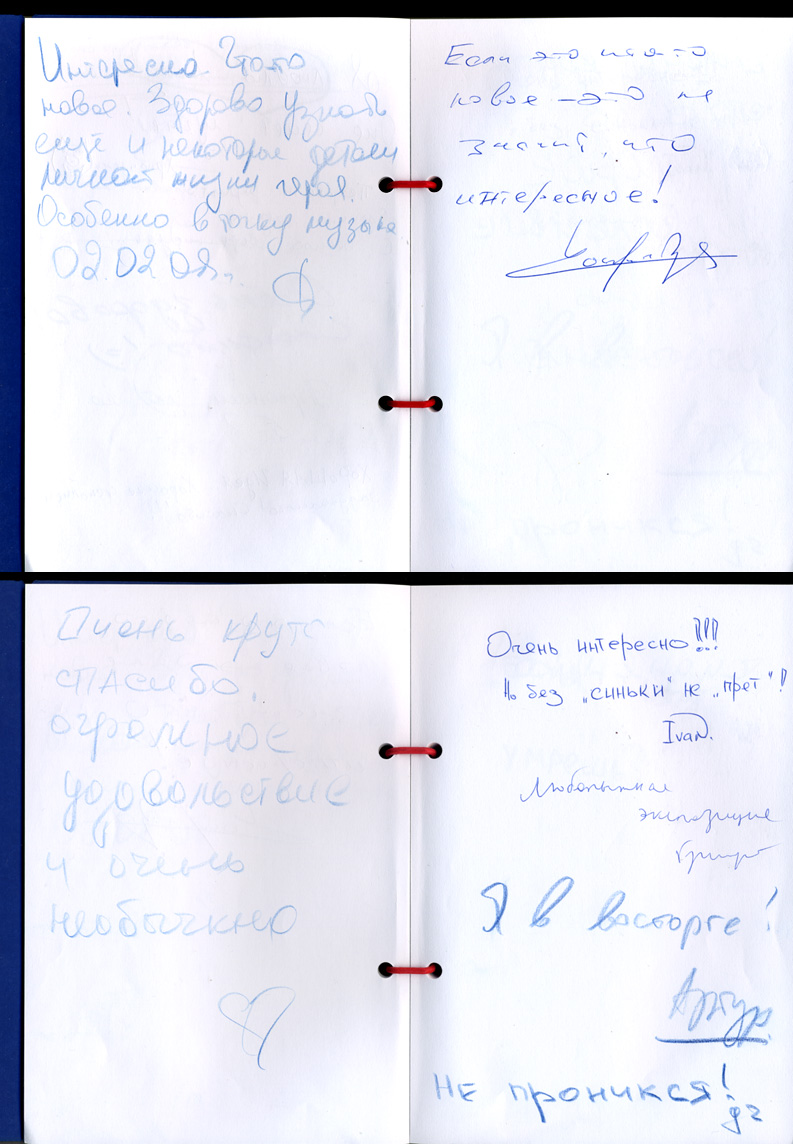 Интересно. Что-то
новое. Здорово узнать
ещё и некоторые детали
личной жизни героя.
Особенно в точку музыка
02.02.08г.
Если это что-то
новое – это не
значит, что
интересное!
Очень круто
спасибо,
огромное
удовольствие
и очень
необычно
Очень интересно!!!
Но без „синьки" не „прёт"!
Ivan.
Любопытная
экспозиция
Я в восторге!
Артур
НЕ ПРОНИКСЯ!